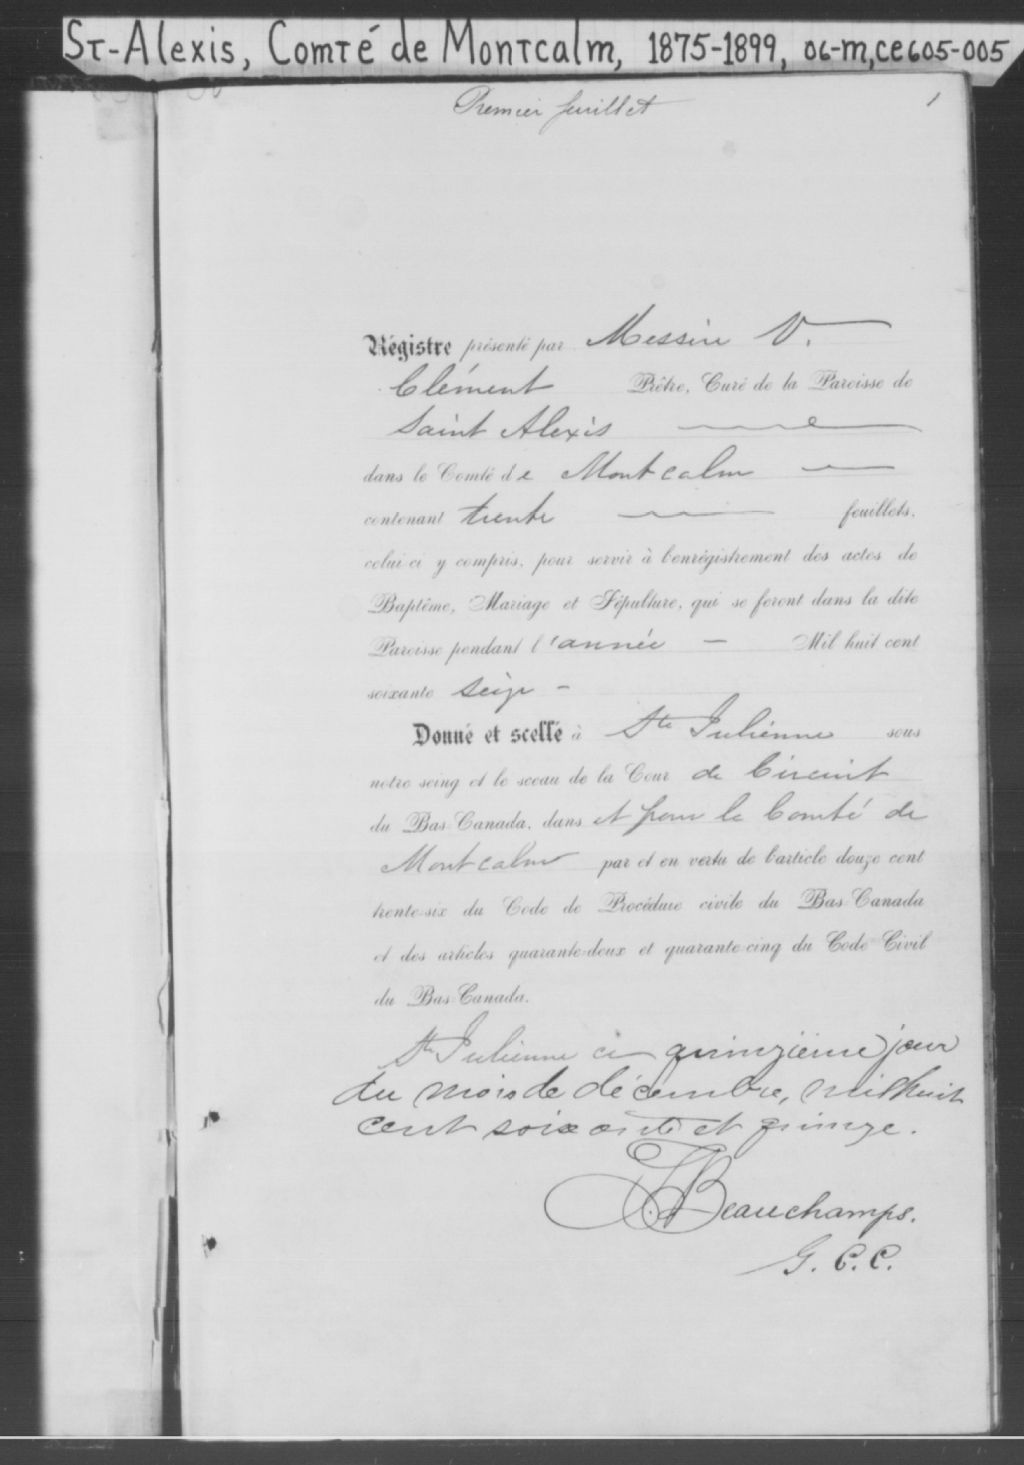 St-Alexis, Comté de Montcalm, 1875-1899, 06-M,CE605-005
Premier feuillet
1
Régistre présenté par Messire V.
Clément Prêtre, Curé de la Paroisse de
Saint Alexis
dans le Comté de Montcalm
contenant trente feuillets,
celui-ci y compris, pour servir à l'enrégistrement des actes de
Baptême, Mariage et Sépulture, qui se feront dans la dite
Paroisse pendant l'année - Mil huit cent
soixante seize -
Donné et scellé à Ste Julienne sous
notre seing et le sceau de la Cour de Circuit
du Bas-Canada, dans et pour le Comté de
Montcalm par et en vertu de l'article douze cent
trente-six du Code de Procédure civile du Bas-Canada
et des articles quarante-deux et quarante-cinq du Code Civil
du Bas-Canada.
Ste Julienne ce quinzième jour
du mois de décembre, mil huit
cent soixante et quinze.
J. Beauchamps.
G. C. C.